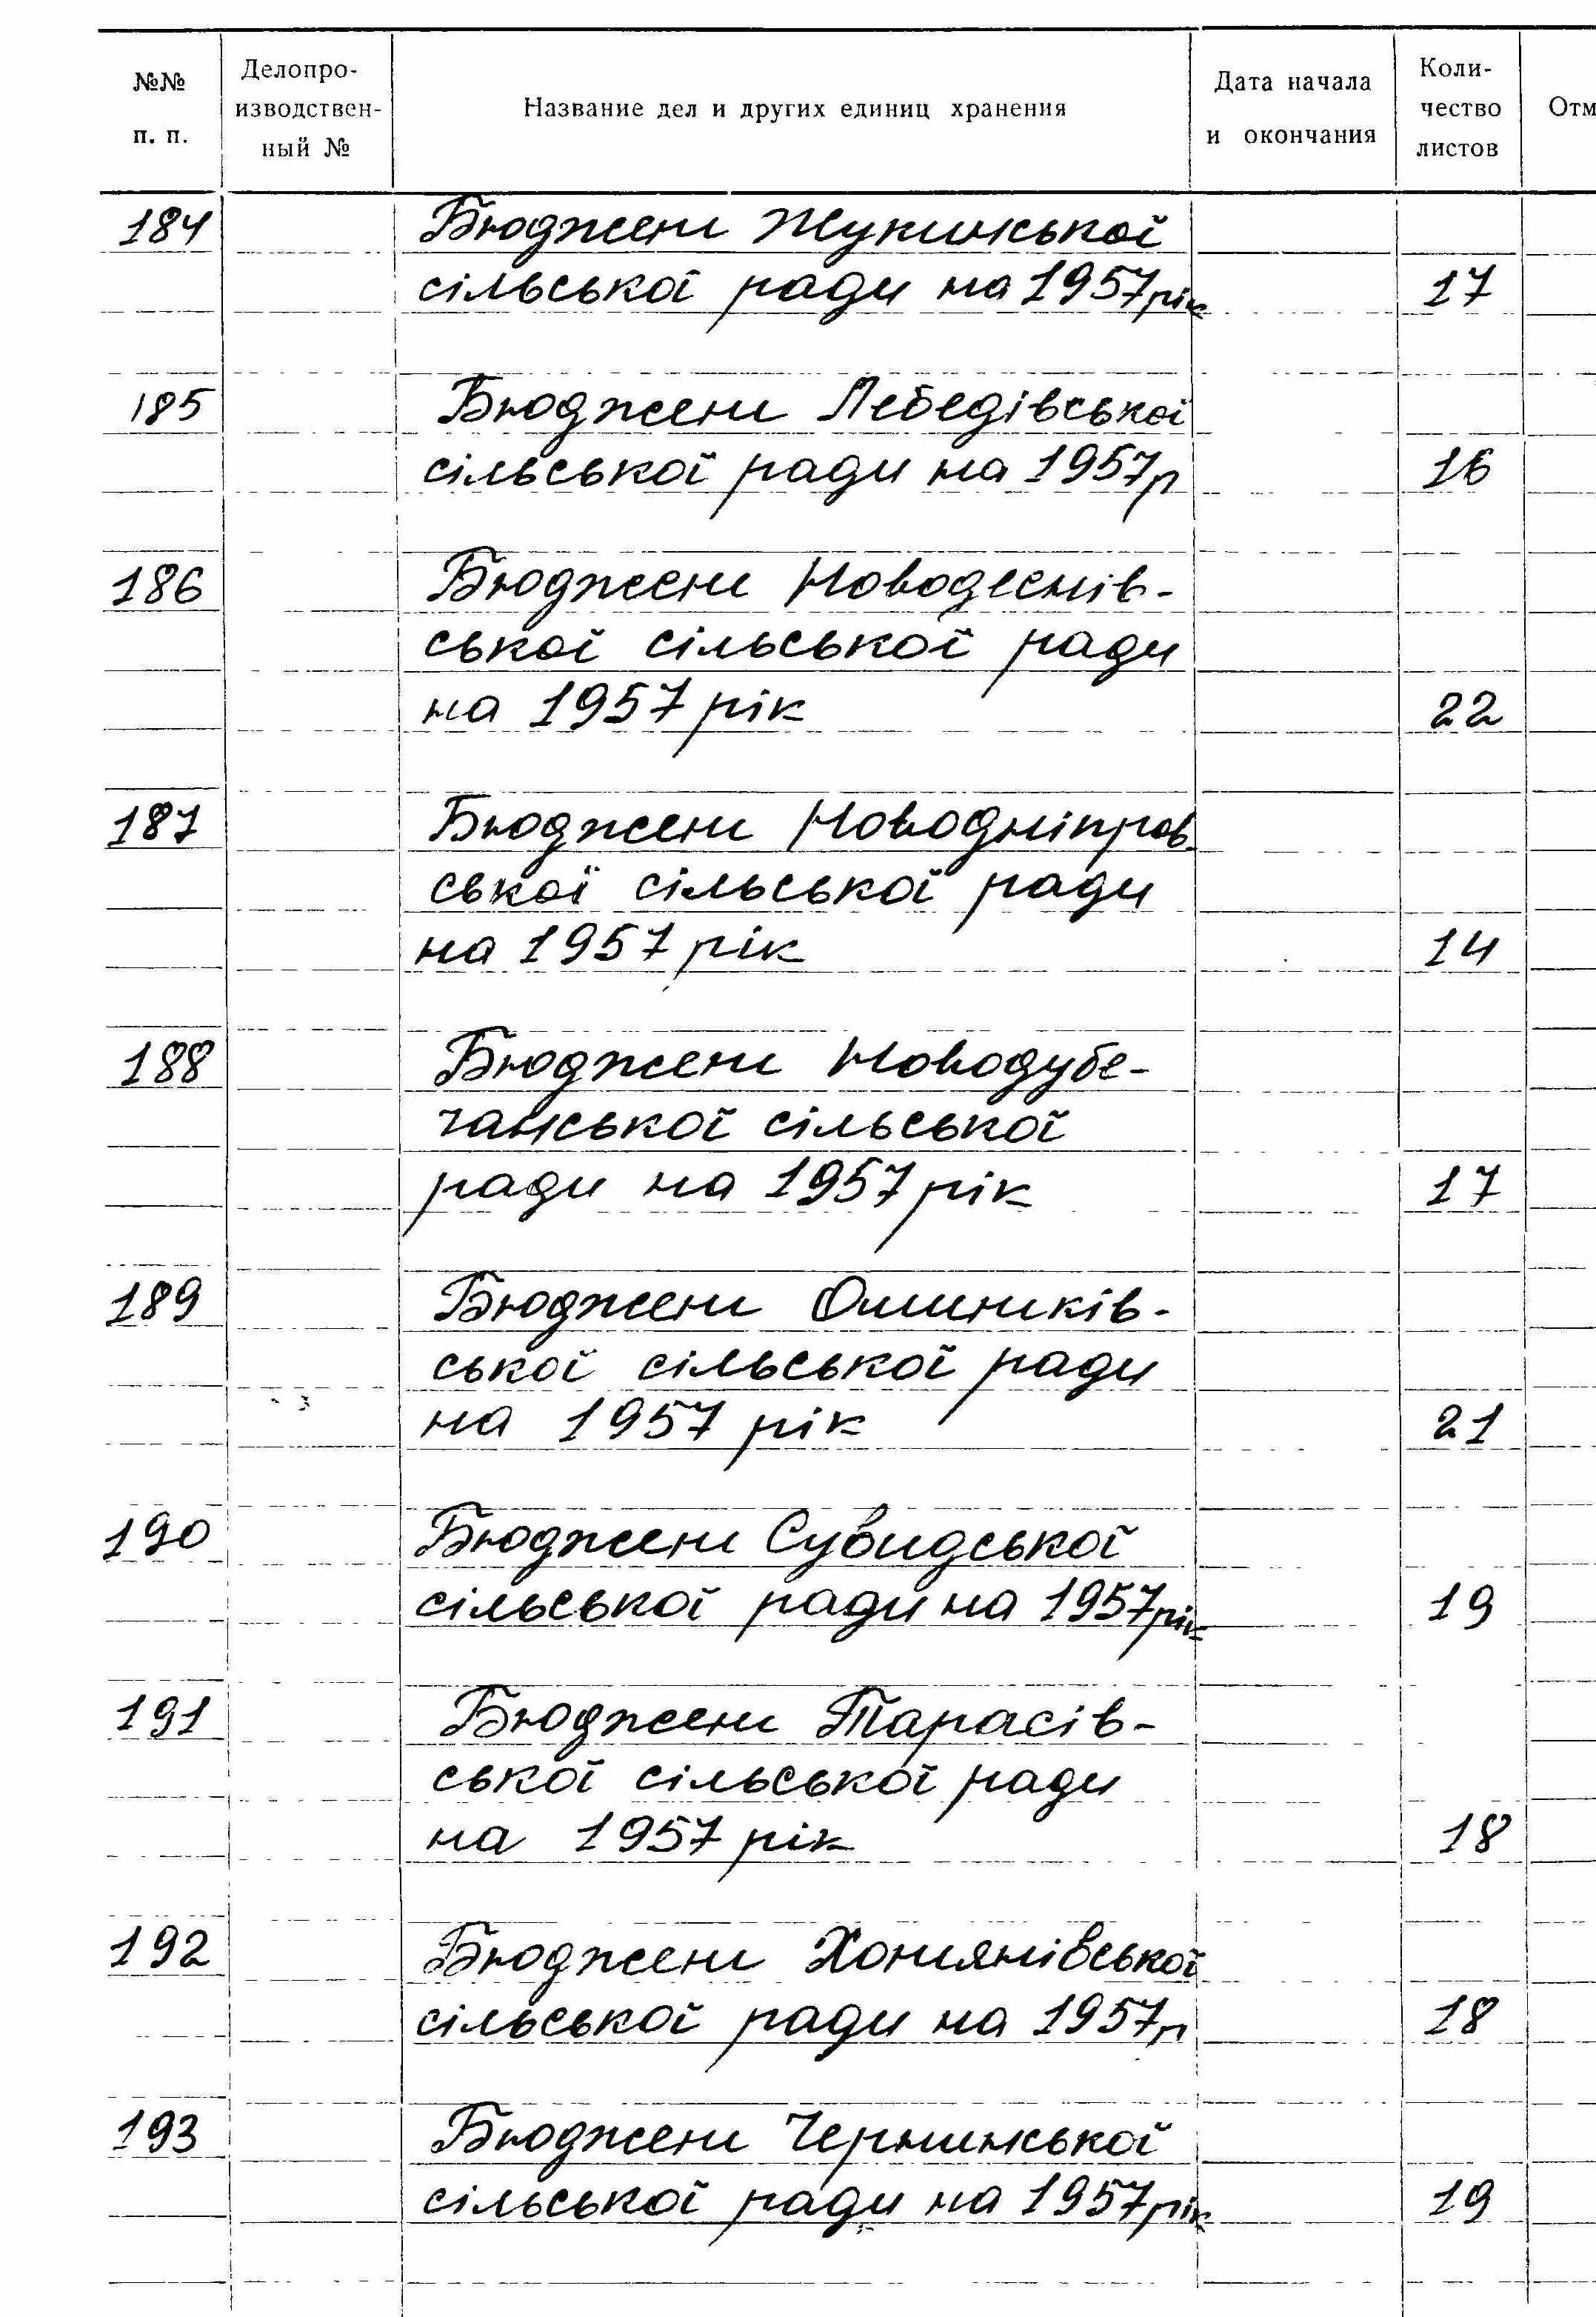 №№
п. п.
Делопро-
изводствен-
ный №
Название дел и других единиц хранения
Дата начала
и окончания
Коли-
чество
листов
Отм
184 Бюджет Жукинської
сільської ради на 1957 рік 17
185 Бюджет Лебедівської
сільської ради на 1957 р 16
186 Бюджет Новодеснів-
ської сільської ради
на 1957 рік 22
187 Бюджет Новодніпров-
ської сільської ради
на 1957 рік 14
188 Бюджет Новодубе-
чанської сільської
ради на 1957 рік 17
189 Бюджет Ошитків-
ської сільської ради
на 1957 рік 21
190 Бюджет Сувидської
сільської ради на 1957 рік 19
191 Бюджет Тарасів-
ської сільської ради
на 1957 рік 18
192 Бюджет Хотянівської
сільської ради на 1957 р 18
193 Бюджет Чернинської
сільської ради на 1957 рік 19